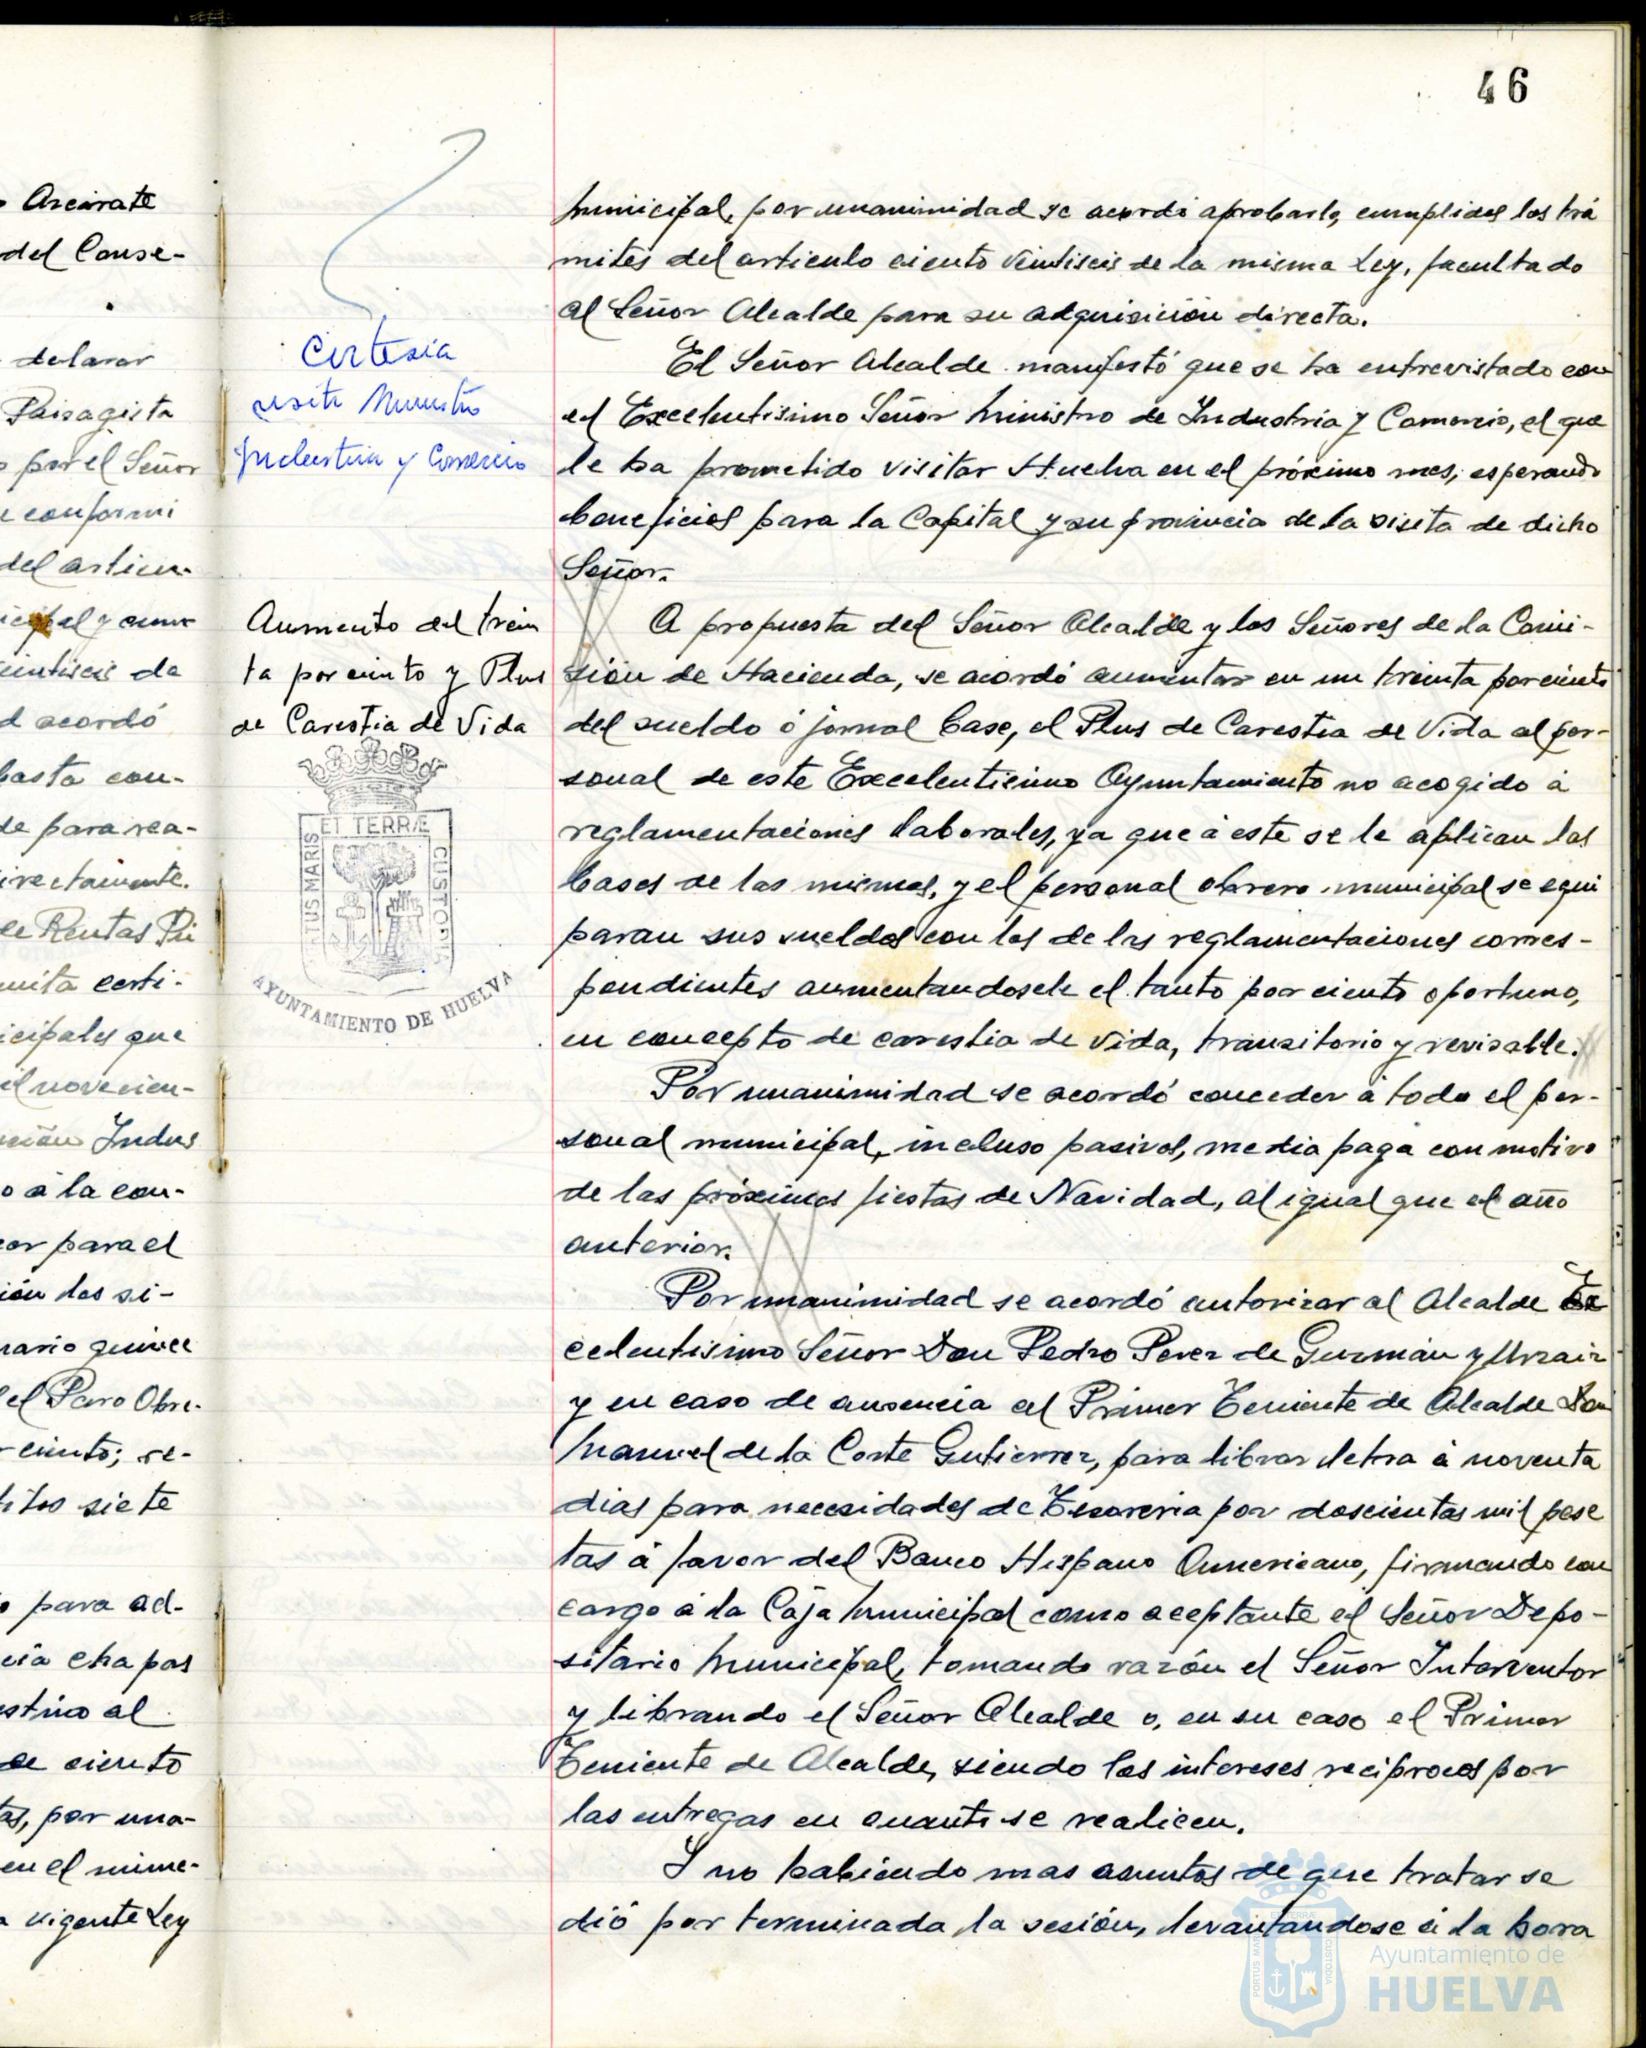 46
o Azcárate
del Conse-
delarar
Paisagista
o por el Señor
e conformi
del artícu-
icipal y cum
eintiseis de
d acordó
basta con-
de para rea-
irectamente.
de Rentas Pú
mita certi-
icipales que
il novecien-
Indus
o á la con-
or para el
ión los si-
nario quince
el Paro Obre-
ciento; re-
siete
o para ad-
cia chapas
estino al
de ciento
tas, por una-
en el núme-
a vigente Ley
Cortesia
visita Ministro
Industria y Comercio
Aumento del trein
ta por ciento y Plus
de Carestia de Vida
PORTUS MARIS ET TERRÆ CUSTODIA
AYUNTAMIENTO DE HUELVA
Municipal, por unanimidad se acordó aprobarlo, cumplidos los trá
mites del articulo ciento veintiseis de la misma Ley, facultado
al Señor Alcalde para su adquisición directa.
El Señor Alcalde manifestó que se ha entrevistado con
el Excelentisimo Señor Ministro de Industria y Comercio, el que
le ha prometido visitar Huelva en el próximo mes, esperando
beneficios para la Capital y su provincia de la visita de dicho
Señor.
A propuesta del Señor Alcalde y los Señores de la Comi-
sión de Hacienda, se acordó aumentar en un treinta por ciento
del sueldo ó jornal base, el Plus de Carestia de Vida al per-
sonal de este Excelentisimo Ayuntamiento no acogido á
reglamentaciones laborales, ya que á este se le aplican las
bases de las mismas, y el personal obrero municipal se equi
paran sus sueldos con los de las reglamentaciones corres-
pondientes aumentandosele el tanto por ciento oportuno,
en concepto de carestia de vida, transitorio y revisable.
Por unanimidad se acordó conceder á todo el per-
sonal municipal, incluso pasivos, media paga con motivo
de las próximas fiestas de Navidad, al igual que el año
anterior.
Por unanimidad se acordó autorizar al Alcalde Ex
celentisimo Señor Don Pedro Perez de Guzmán y Urzaiz
y en caso de ausencia al Primer Teniente de Alcalde Don
Manuel de la Corte Gutierrez, para librar letra á noventa
dias para necesidades de Tesoreria por doscientas mil pese
tas á favor del Banco Hispano Americano, firmando con
cargo á la Caja Municipal como aceptante el Señor Depo-
sitario Municipal, tomando razón el Señor Interventor
y librando el Señor Alcalde o, en su caso el Primer
Teniente de Alcalde, siendo los intereses reciprocos por
las entregas en cuanto se realicen.
Y no habiendo mas asuntos de que tratar se
dió por terminada la sesión, levantandose á la hora
Ayuntamiento de
HUELVA